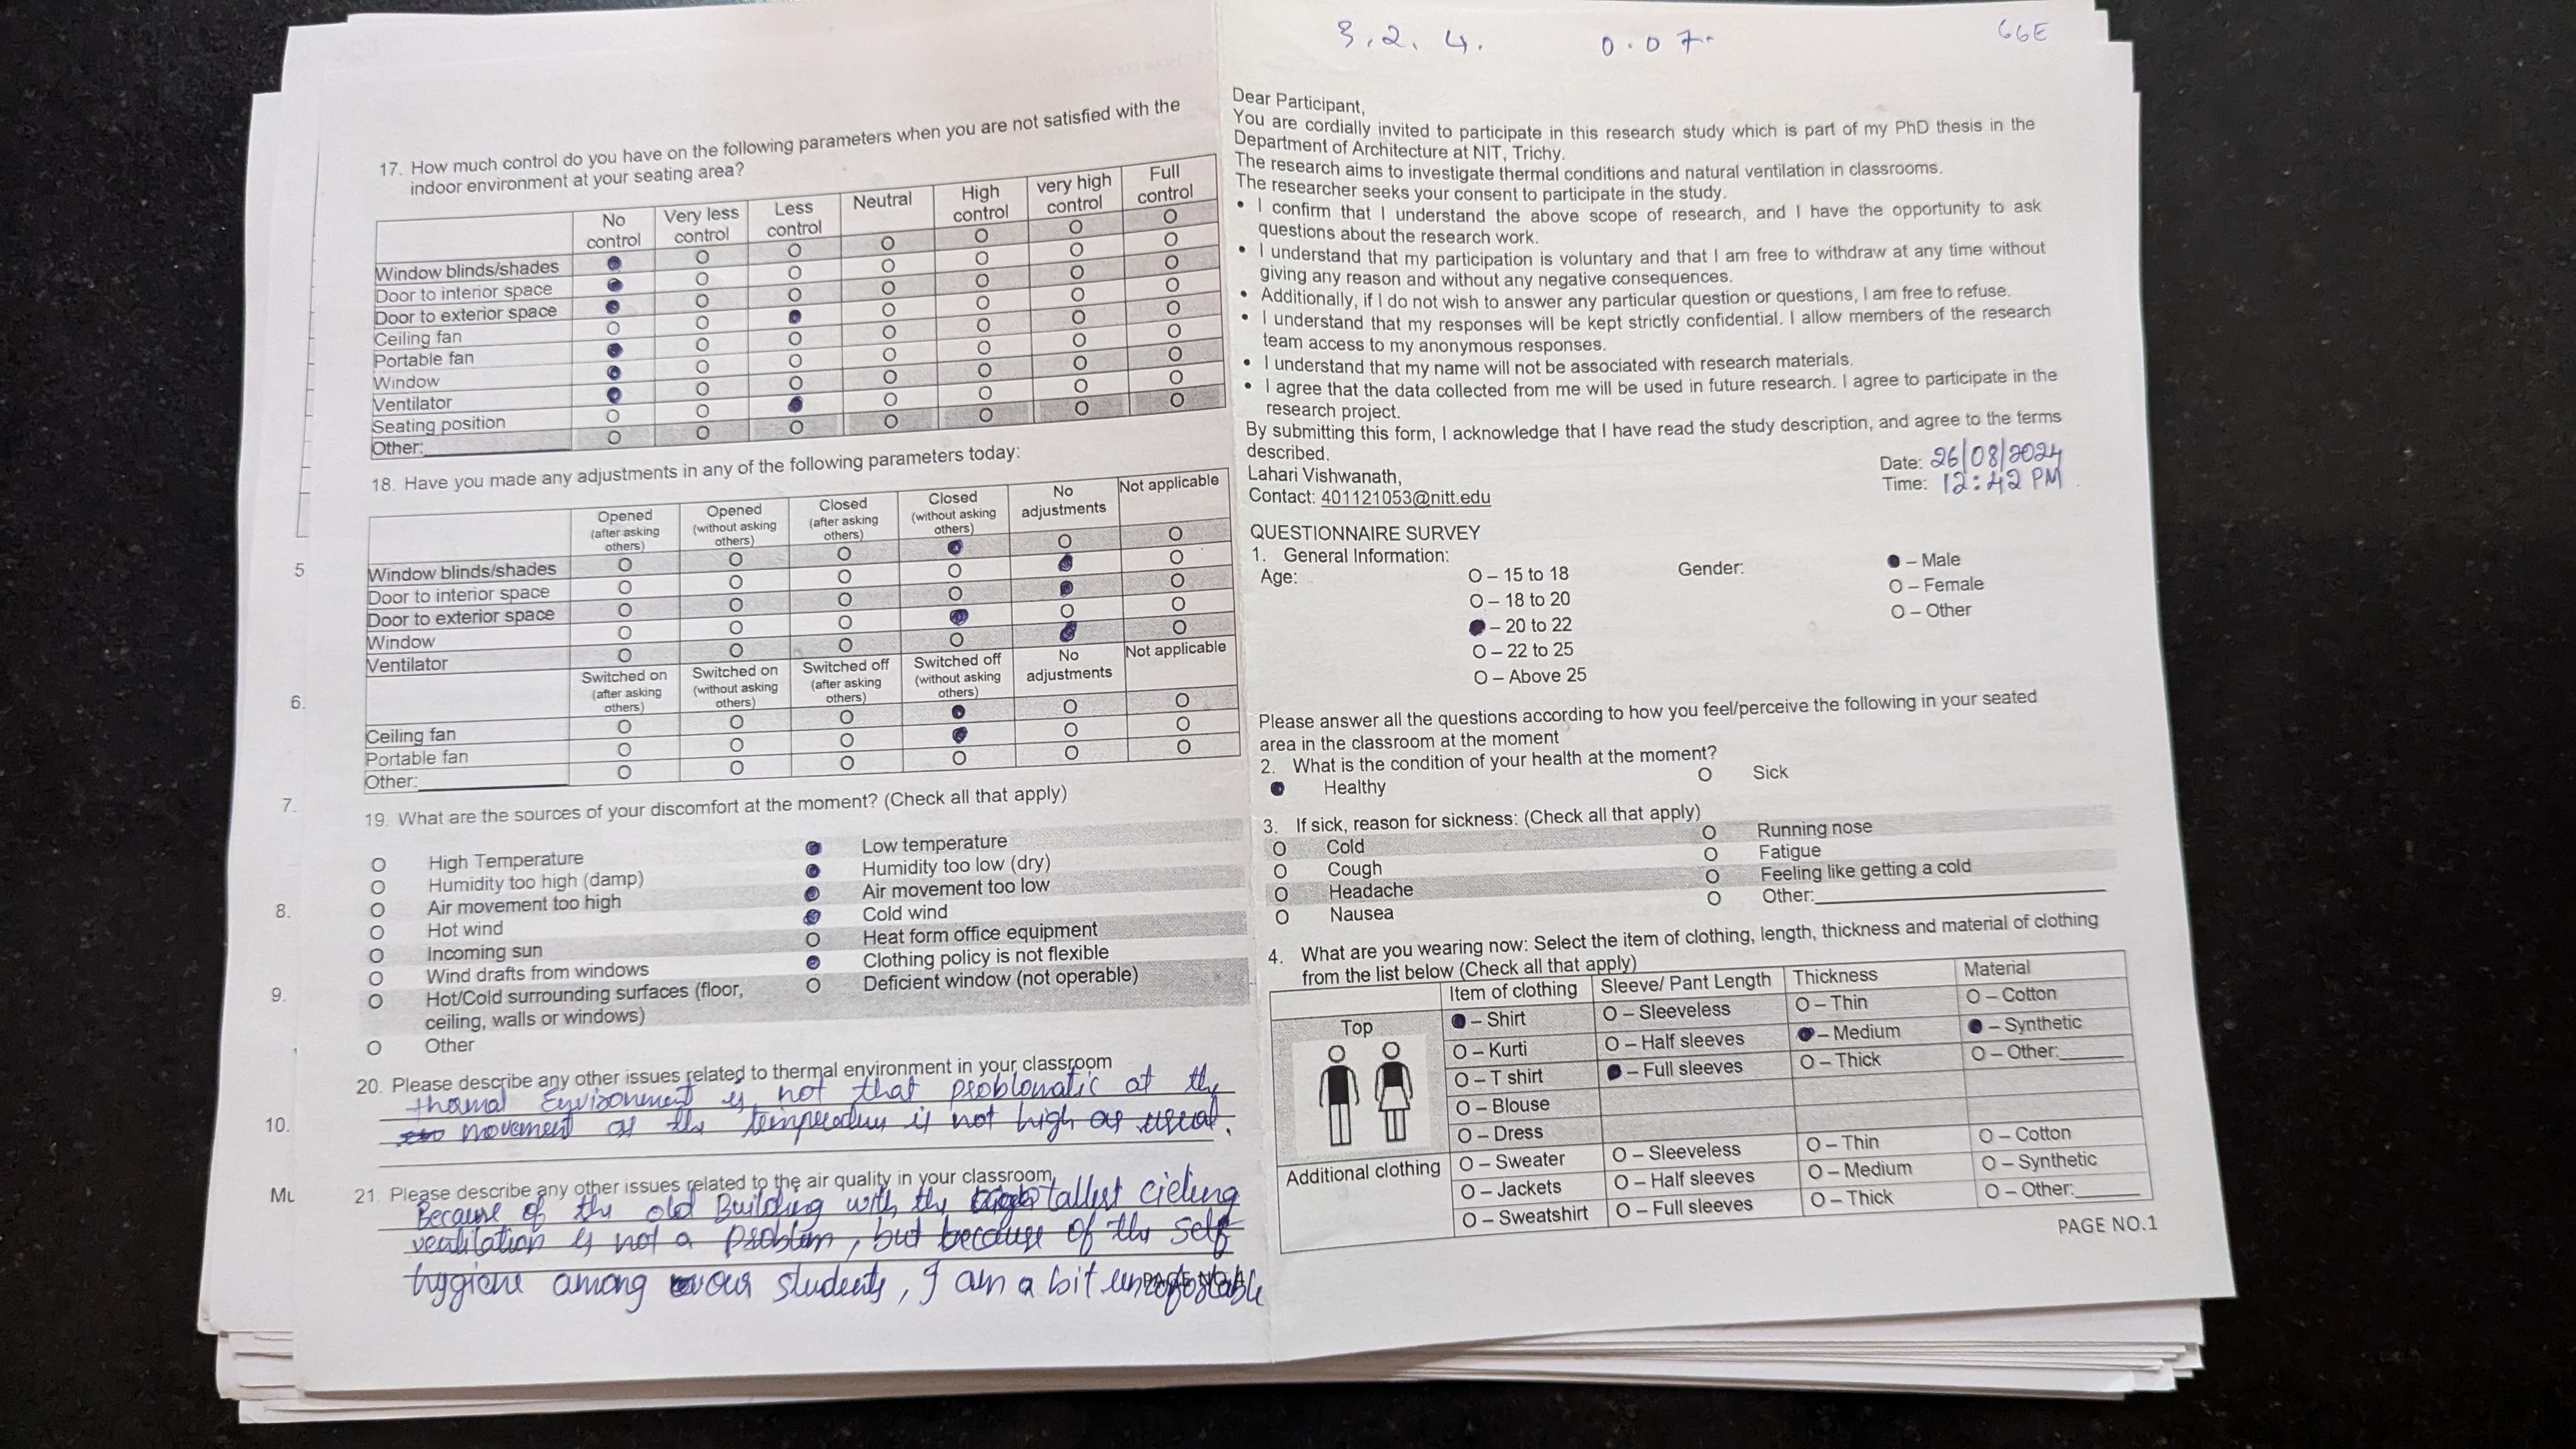 17. How much control do you have on the following parameters when you are not satisfied with the
indoor environment at your seating area?
No control Very less control Less control Neutral High control very high control Full control
Window blinds/shades
Door to interior space
Door to exterior space
Ceiling fan
Portable fan
Window
Ventilator
Seating position
Other:
18. Have you made any adjustments in any of the following parameters today:
Opened (after asking others) Opened (without asking others) Closed (after asking others) Closed (without asking others) No adjustments Not applicable
Window blinds/shades
Door to interior space
Door to exterior space
Window
Ventilator
Switched on (after asking others) Switched on (without asking others) Switched off (after asking others) Switched off (without asking others) No adjustments Not applicable
Ceiling fan
Portable fan
Other:
19. What are the sources of your discomfort at the moment? (Check all that apply)
High Temperature Low temperature
Humidity too high (damp) Humidity too low (dry)
Air movement too high Air movement too low
Hot wind Cold wind
Incoming sun Heat form office equipment
Wind drafts from windows Clothing policy is not flexible
Hot/Cold surrounding surfaces (floor, Deficient window (not operable)
ceiling, walls or windows)
Other
20. Please describe any other issues related to thermal environment in your classroom
thermal Environment is not that problematic at the
movement as the temperature is not high as usual.
21. Please describe any other issues related to the air quality in your classroom
Because of the old Building with the tallest cieling
ventilation is not a problem, but because of the self
hygiene among our students, I am a bit
5
6.
7.
8.
9.
10.
3.2.4. 0.07. 66E
Dear Participant,
You are cordially invited to participate in this research study which is part of my PhD thesis in the
Department of Architecture at NIT, Trichy.
The research aims to investigate thermal conditions and natural ventilation in classrooms.
The researcher seeks your consent to participate in the study.
• I confirm that I understand the above scope of research, and I have the opportunity to ask
questions about the research work.
• I understand that my participation is voluntary and that I am free to withdraw at any time without
giving any reason and without any negative consequences.
• Additionally, if I do not wish to answer any particular question or questions, I am free to refuse.
• I understand that my responses will be kept strictly confidential. I allow members of the research
team access to my anonymous responses.
• I understand that my name will not be associated with research materials.
• I agree that the data collected from me will be used in future research. I agree to participate in the
research project.
By submitting this form, I acknowledge that I have read the study description, and agree to the terms
described.
Lahari Vishwanath,
Contact: 401121053@nitt.edu
Date: 26/08/2024
Time: 12:42 PM
QUESTIONNAIRE SURVEY
1. General Information:
Age: O – 15 to 18 Gender: – Male
O – 18 to 20 O – Female
– 20 to 22 O – Other
O – 22 to 25
O – Above 25
Please answer all the questions according to how you feel/perceive the following in your seated
area in the classroom at the moment
2. What is the condition of your health at the moment?
Healthy O Sick
3. If sick, reason for sickness: (Check all that apply)
O Cold O Running nose
O Cough O Fatigue
O Headache O Feeling like getting a cold
O Nausea O Other:
4. What are you wearing now: Select the item of clothing, length, thickness and material of clothing
from the list below (Check all that apply)
Item of clothing Sleeve/ Pant Length Thickness Material
Top – Shirt O – Sleeveless O – Thin O – Cotton
O – Kurti O – Half sleeves – Medium – Synthetic
O – T shirt – Full sleeves O – Thick O – Other:
O – Blouse
O – Dress
Additional clothing O – Sweater O – Sleeveless O – Thin O – Cotton
O – Jackets O – Half sleeves O – Medium O – Synthetic
O – Sweatshirt O – Full sleeves O – Thick O – Other:
PAGE NO.1